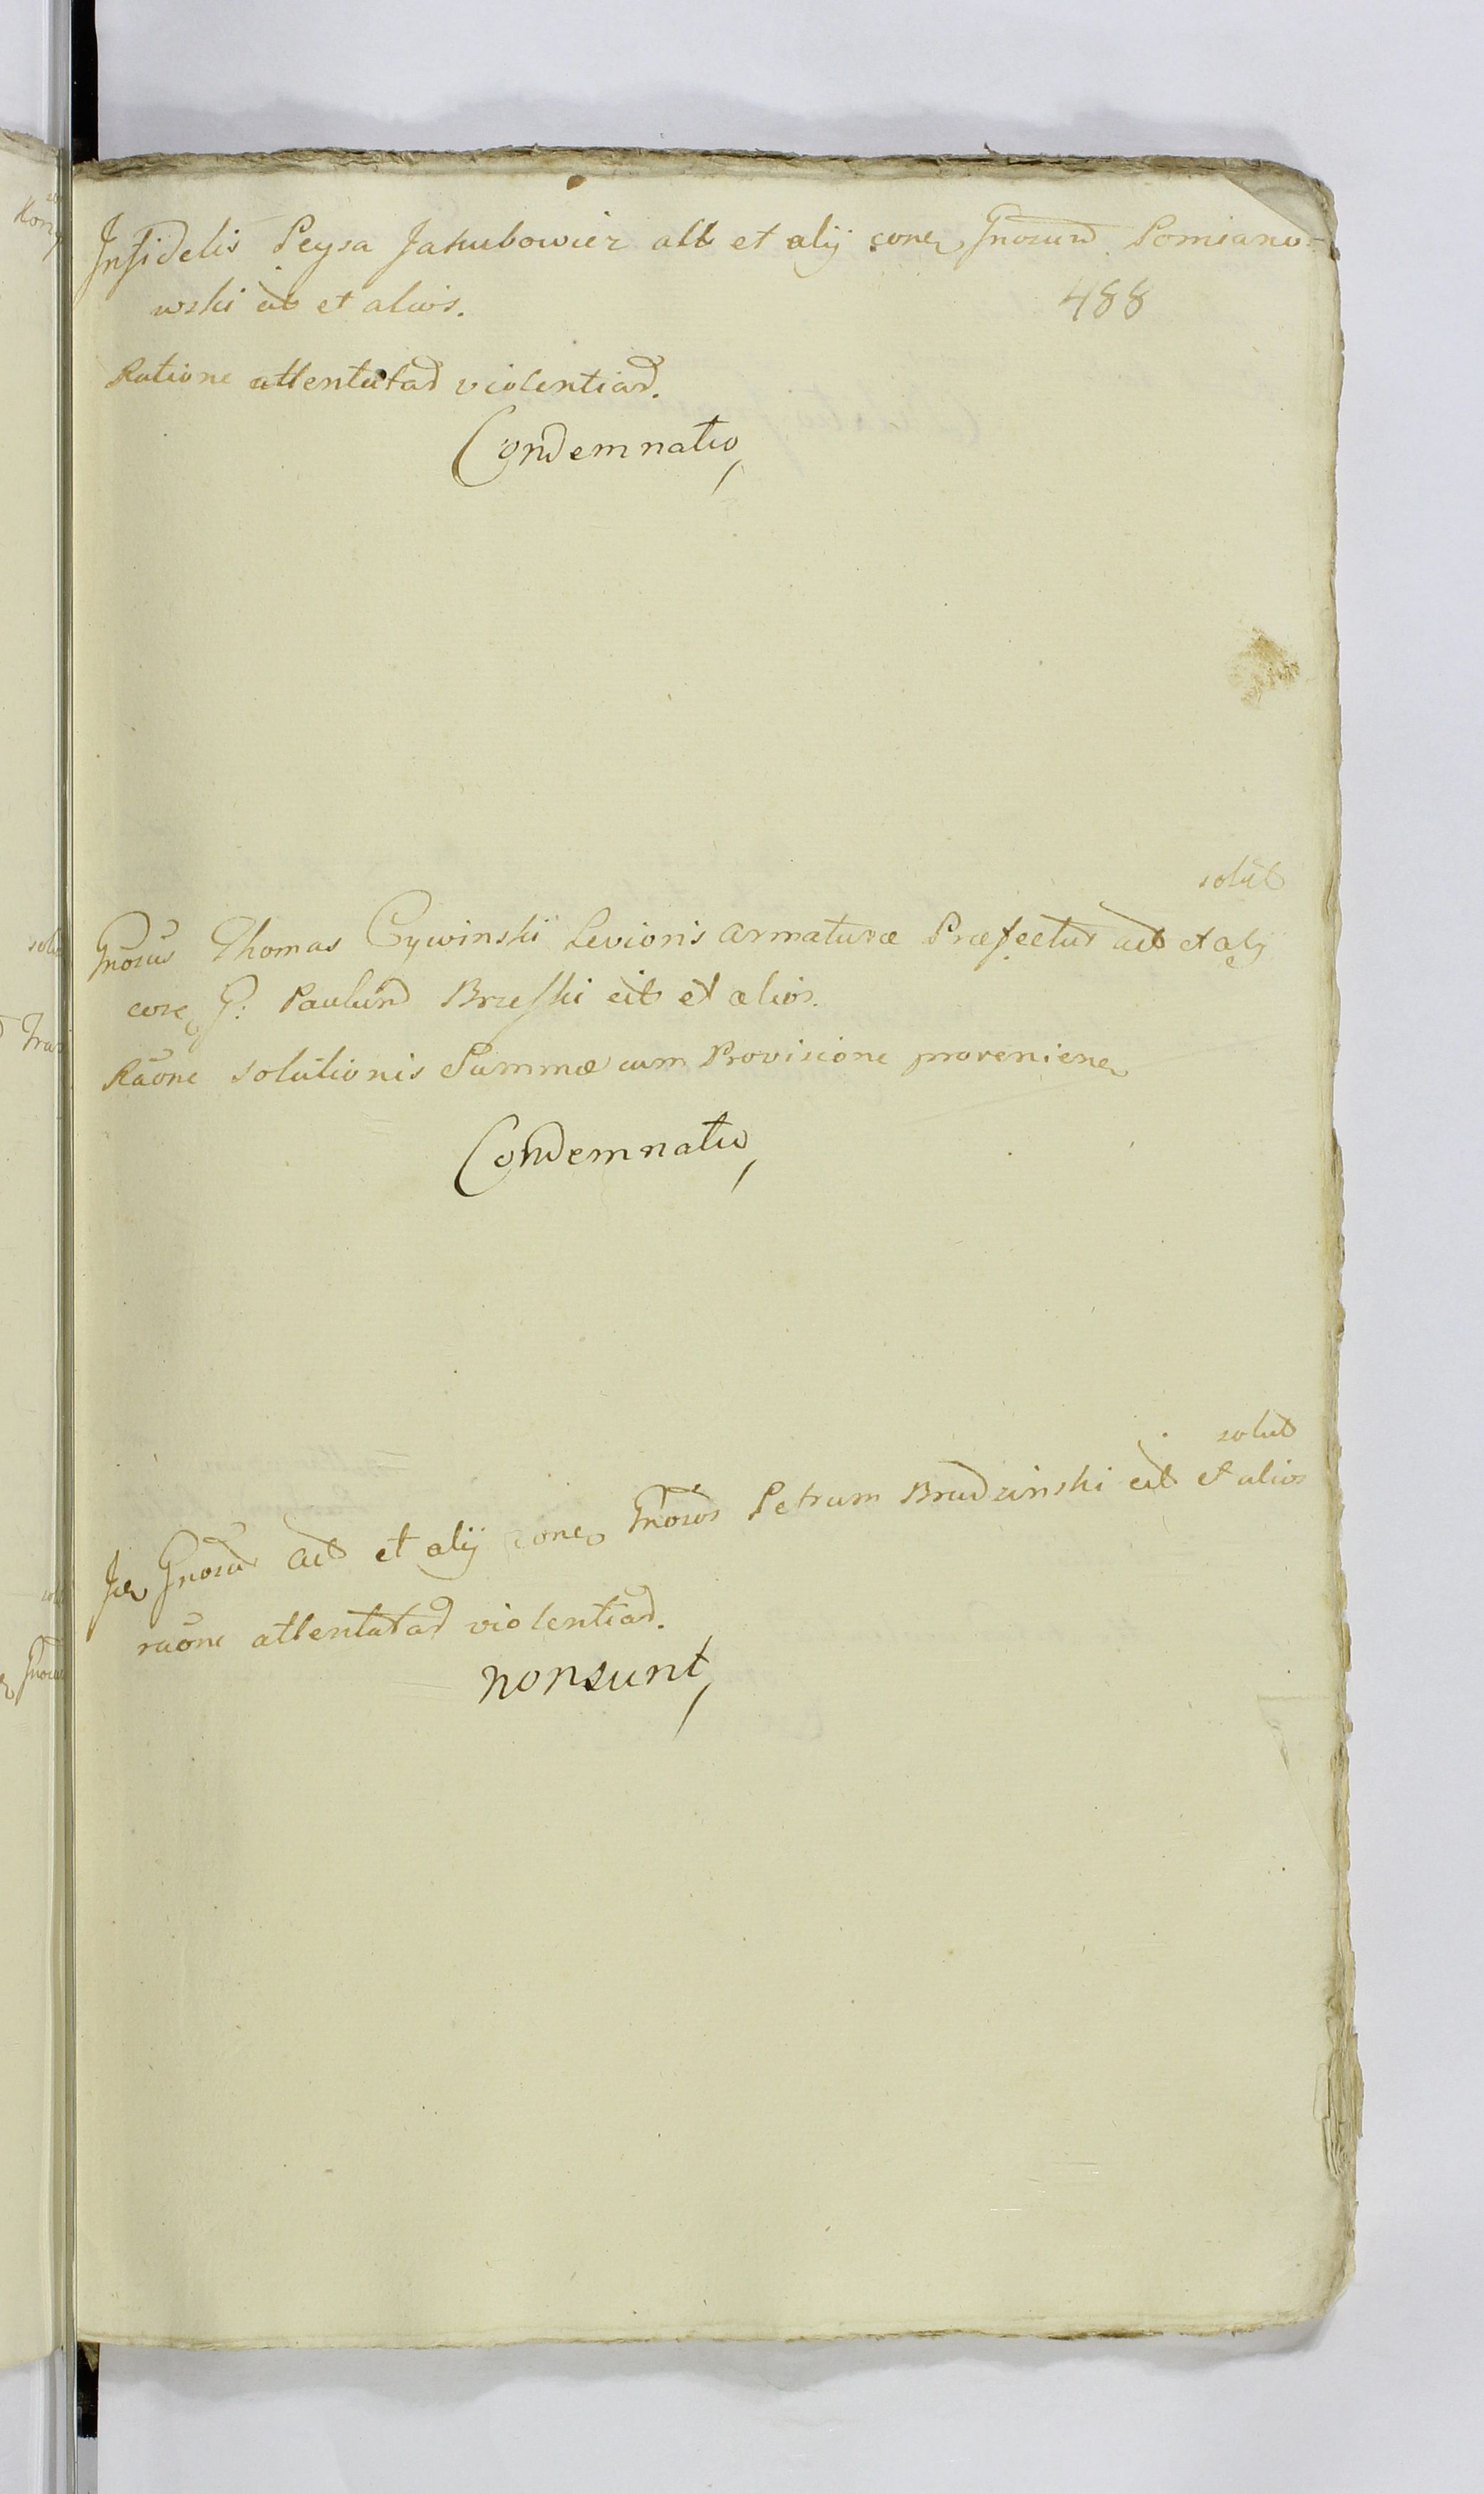 Infidelis Peysa Jakubowicz act et alij conc Gnosum Pomiano-
wski cit et alios.
488
Ratione attentatad violentiad.
Condemnatio
solut
Gnosus Thomas Cywinski Levioris armaturæ Præfectus act et alij
conc G: Paulum Brzeski cit et alios.
Raone solutionis Summæ cum Provisione provenienc
Condemnatio
solut
Idē Gnosus act et alij conc Gnosos Petrum Brudzinski cit et alios
raone attentatad violentiad.
non sunt